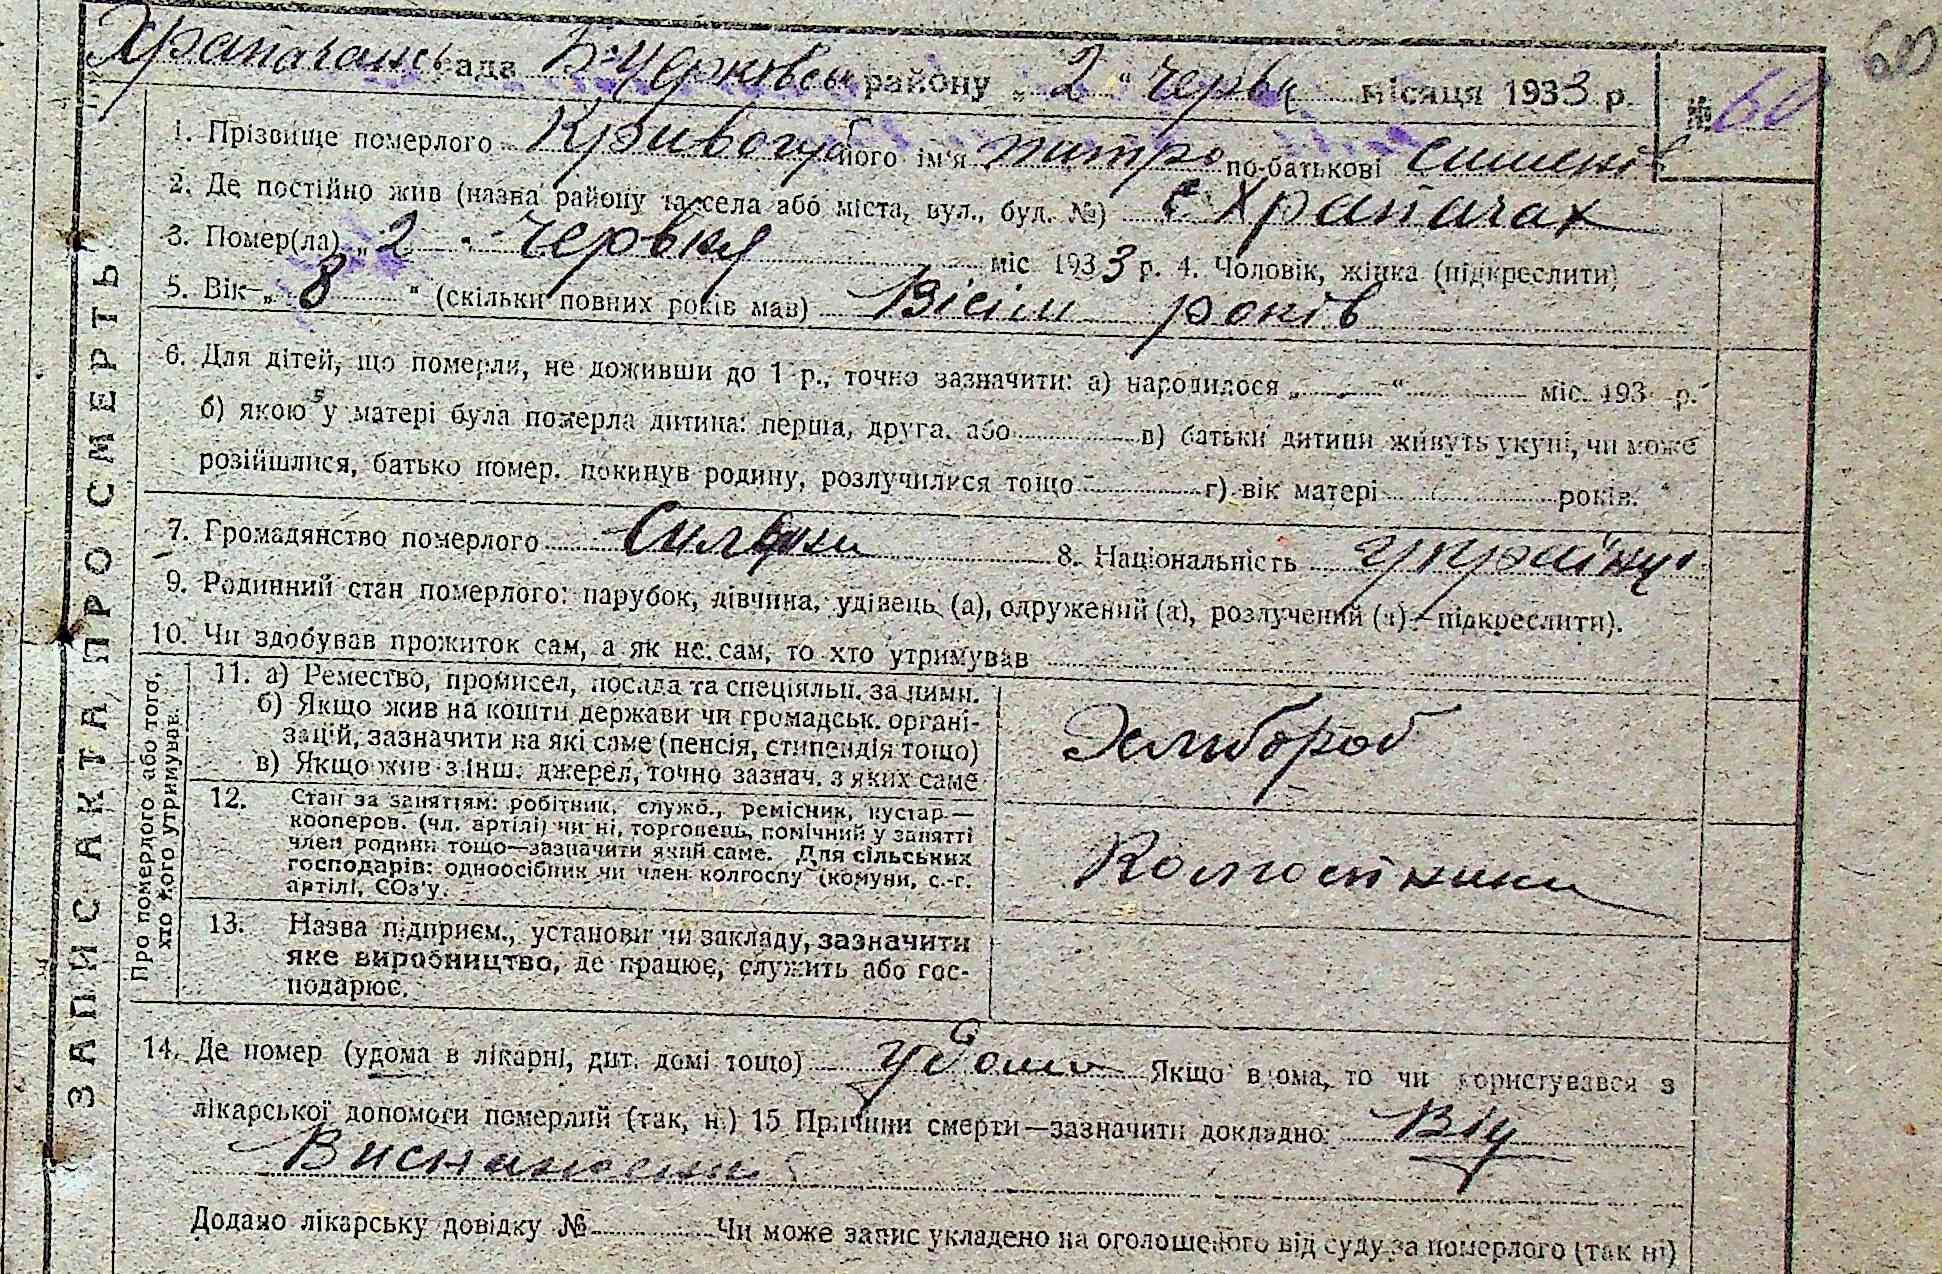 60
Храпачанс рада Б-Церковськ району „ 2 “ червц місяця 1933 р. № 60
1. Прізвище померлого Кривогуб його ім'я по-батькові
2. Де постійно жив (назва району та села або міста, вул., буд. №) с Храпачах
3. Помер(ла) „ 2 “ червня міс. 1933 р. 4. Чоловік, жінка (підкреслити)
5. Вік „ 8 “ (скільки повних років мав) Вісім років
6. Для дітей, що померли, не доживши до 1 р., точно зазначити: а) народилося „ “ міс. 193 р.
б) якою у матері була померла дитина: перша, друга, або в) батьки дитини живуть укупі, чи може
розійшлися, батько помер, покинув родину, розлучилися тощо г) вік матері років.
7. Громадянство померлого 8. Національність україн
9. Родинний стан померлого: парубок, дівчина, удівець (а), одружений (а), розлучений (а)—підкреслити).
10. Чи здобував прожиток сам, а як не сам, то хто утримував
11. а) Ремество, промисел, посада та спеціяльн. за ними.
б) Якщо жив на кошти держави чи громадськ. органі-
зацій, зазначити на які саме (пенсія, стипендія тощо)
в) Якщо жив з інш. джерел, точно зазнач. з яких саме
Хлибороб
12. Стан за заняттям: робітник, служб., ремісник, кустар—
кооперов. (чл. артілі) чи ні, торговець, помічний у занятті
член родини тощо—зазначити який саме. Для сільських
господарів: одноосібник чи член колгоспу (комуни, с.-г.
артілі, СОз'у.
Колгоспники
13. Назва підприєм., установи чи закладу, зазначити
яке виробництво, де працює, служить або гос-
подарює.
14. Де помер (удома в лікарні, дит. домі тощо) удома Якщо вдома, то чи користувався з
лікарської допомоги померлий (так, ні) 15 Причини смерти—зазначити докладно: Від
Виснаження
Додано лікарську довідку № Чи може запис укладено на оголошеного від суду за померлого (так ні)
ЗАПИС АКТА ПРО СМЕРТЬ
Про померлого або того,
хто його утримував.